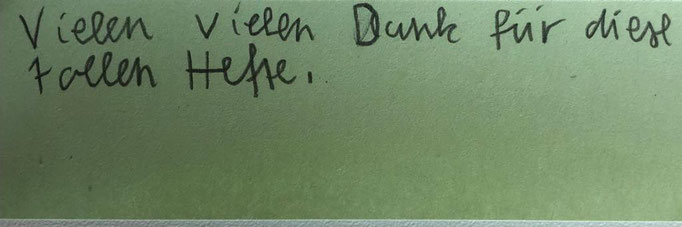 Vielen vielen Dank für diese
tollen Hefte.